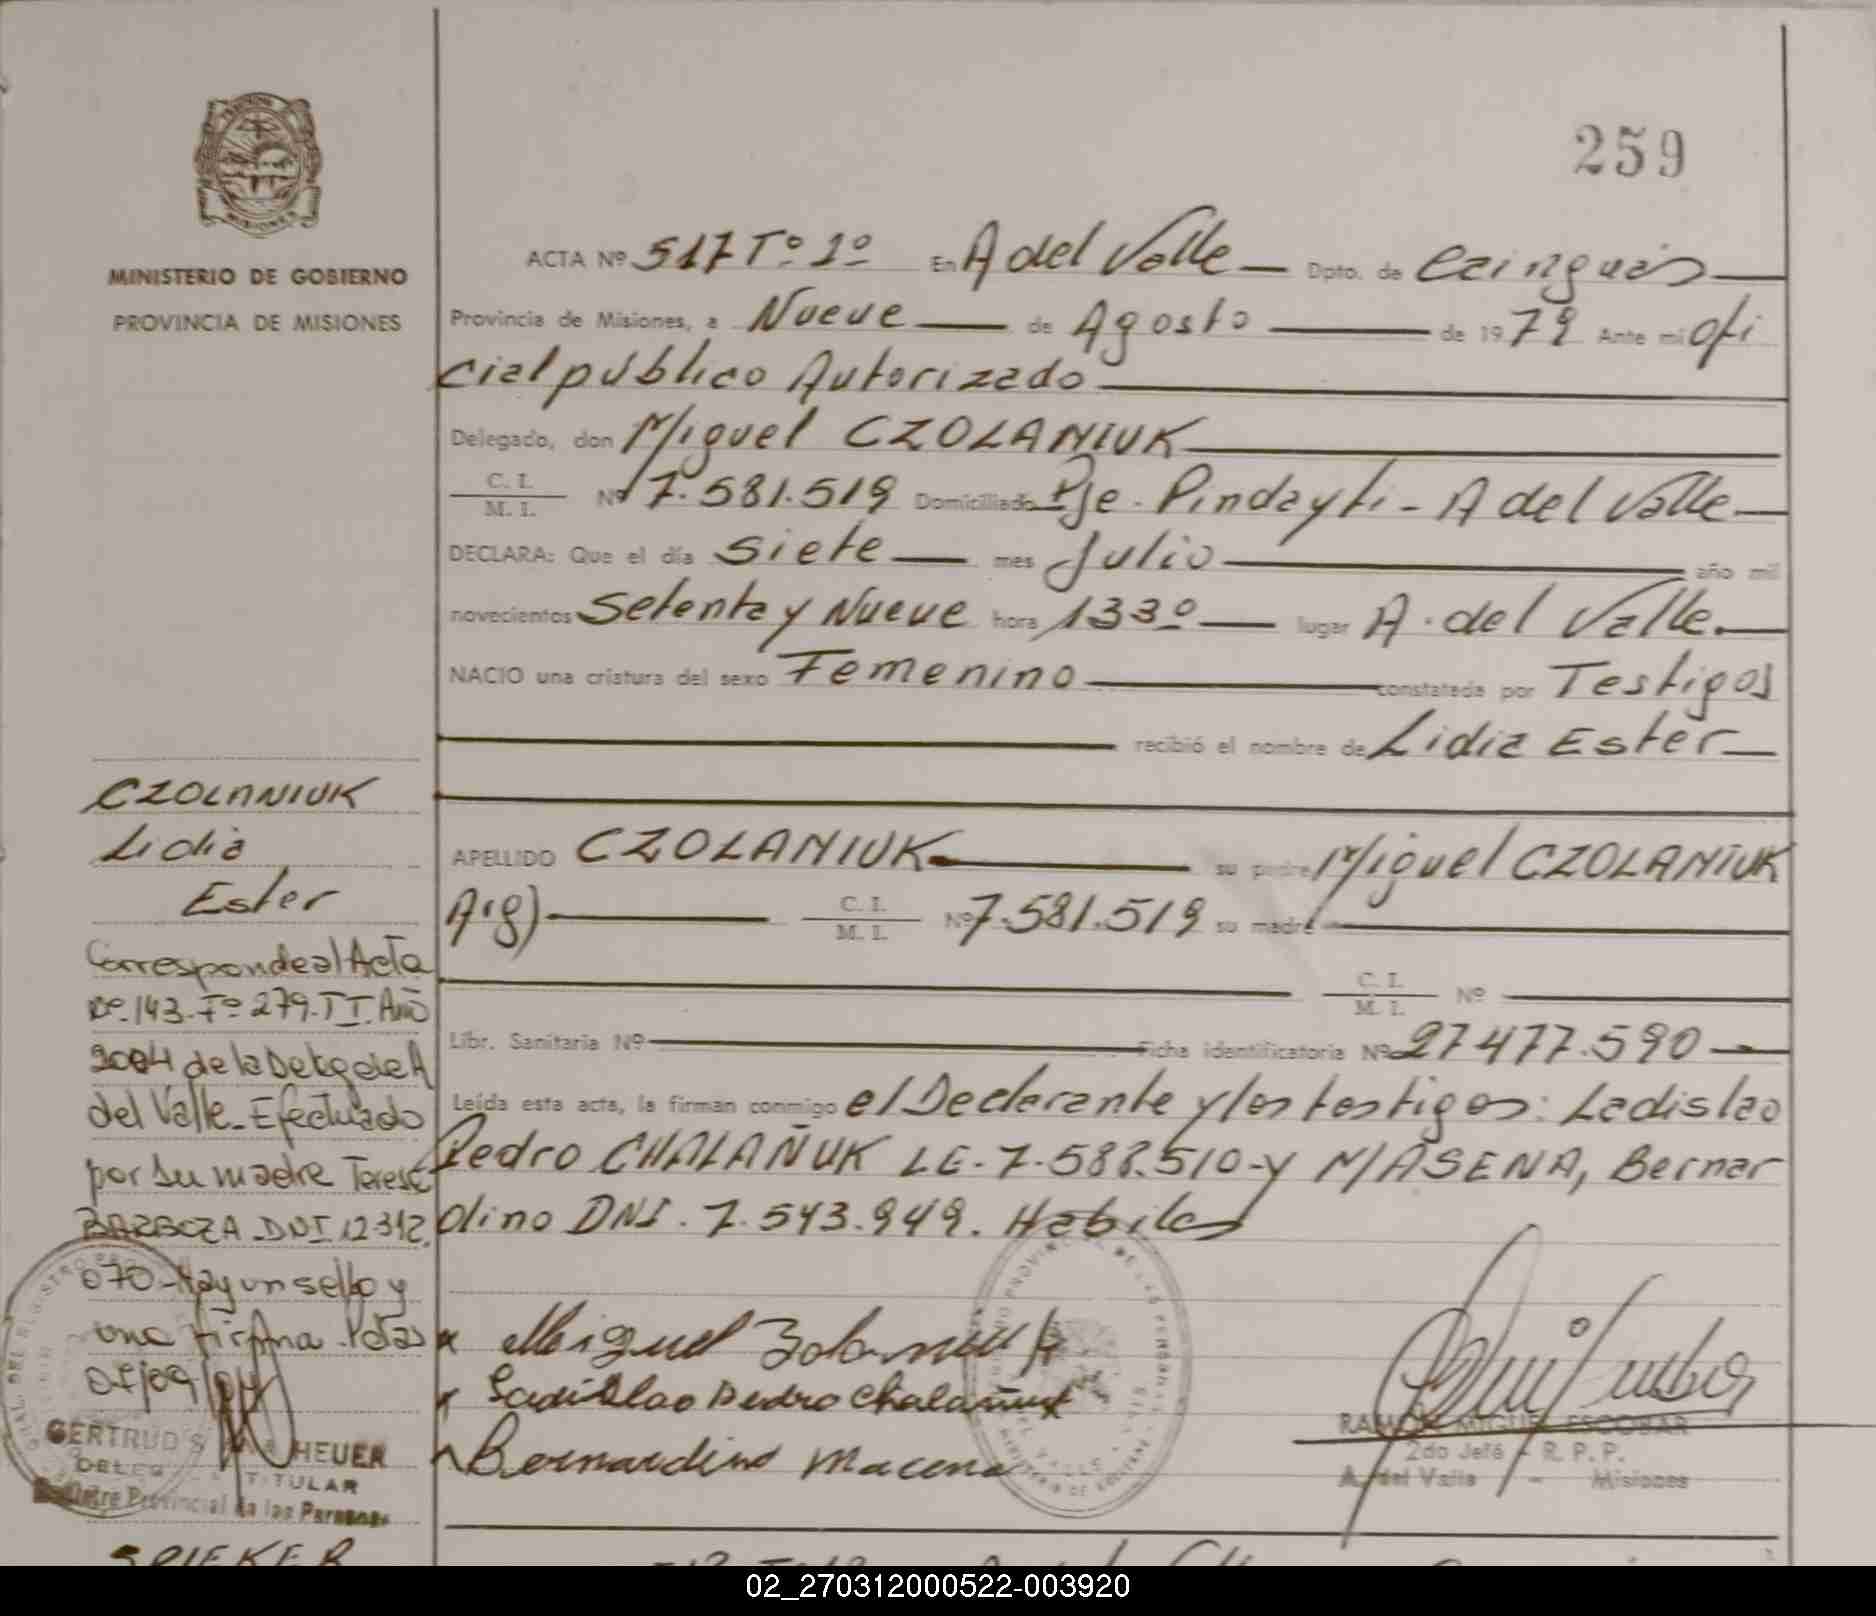 259
MINISTERIO DE GOBIERNO
PROVINCIA DE MISIONES
ACTA Nº 517 Tº 1º En A del Valle Dpto. de Cainguás
Provincia de Misiones, a Nueve de Agosto de 1979 Ante mi Ofi
cial público Autorizado
Delegado, don Miguel CZOLANIUK
C. I. / M. I. Nº 7.581.519 Domiciliado Pje - Pindayti - A del Valle
DECLARA: Que el día Siete mes Julio año mil
novecientos Setenta y Nueve hora 1330 lugar A. del Valle.
NACIO una criatura del sexo Femenino constatada por Testigos
recibió el nombre de Lidia Ester
APELLIDO CZOLANIUK su padre Miguel CZOLANIUK
Arg) C. I. / M. I. Nº 7.581.519 su madre
C. I. / M. I. Nº
Libr. Sanitaria Nº Ficha identificatoria Nº 27477.590
Leída esta acta, la firman conmigo el Declarante y los testigos: Ladislao
Pedro CHALAÑUK LE-7.588.510-y MASENA, Bernar
dino DNI. 7.543.949. Habiles
Miguel
Ladislao Pedro Chalañuk
Bernardino Macena
RAMON MIGUEL ESCOBAR
2do Jefe - R. P. P.
A. del Valle - Misiones
CZOLANIUK
Lidia
Ester
Corresponde al Acta
Nº 143. Fº 279. T I. Año
2004 de la Deleg de A
del Valle - Efectuado
por su madre Teresa
BARBOZA DNI 12312.
070 - Hay un sello y
una firma.
07/09/04
GERTRUDIS HEUER
TITULAR
Registro Provincial de las Personas
SPIEKER
02_270312000522-003920